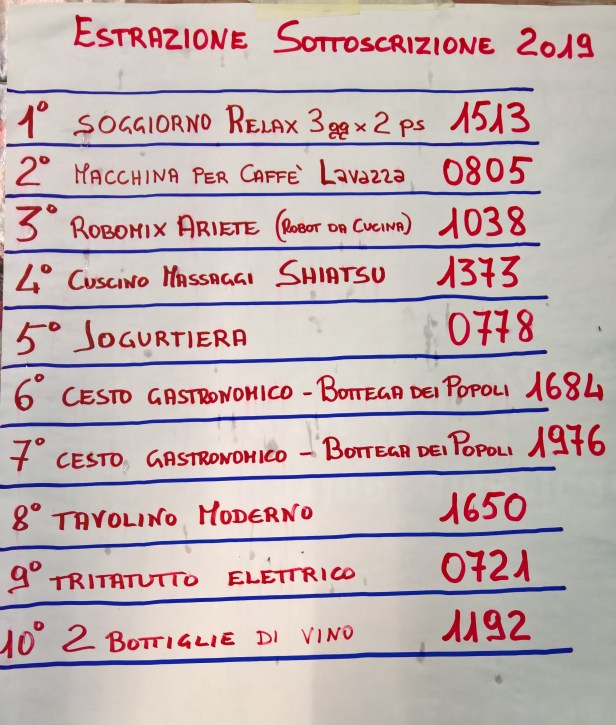 ESTRAZIONE SOTTOSCRIZIONE 2019
1° SOGGIORNO RELAX 3gg x 2 ps 1513
2° MACCHINA PER CAFFÈ Lavazza 0805
3° ROBOMIX ARIETE (ROBOT DA CUCINA) 1038
4° CUSCINO MASSAGGI SHIATSU 1373
5° JOGURTIERA 0778
6° CESTO GASTRONOMICO - BOTTEGA DEI POPOLI 1684
7° CESTO GASTRONOMICO - BOTTEGA DEI POPOLI 1976
8° TAVOLINO MODERNO 1650
9° TRITATUTTO ELETTRICO 0721
10° 2 BOTTIGLIE DI VINO 1192